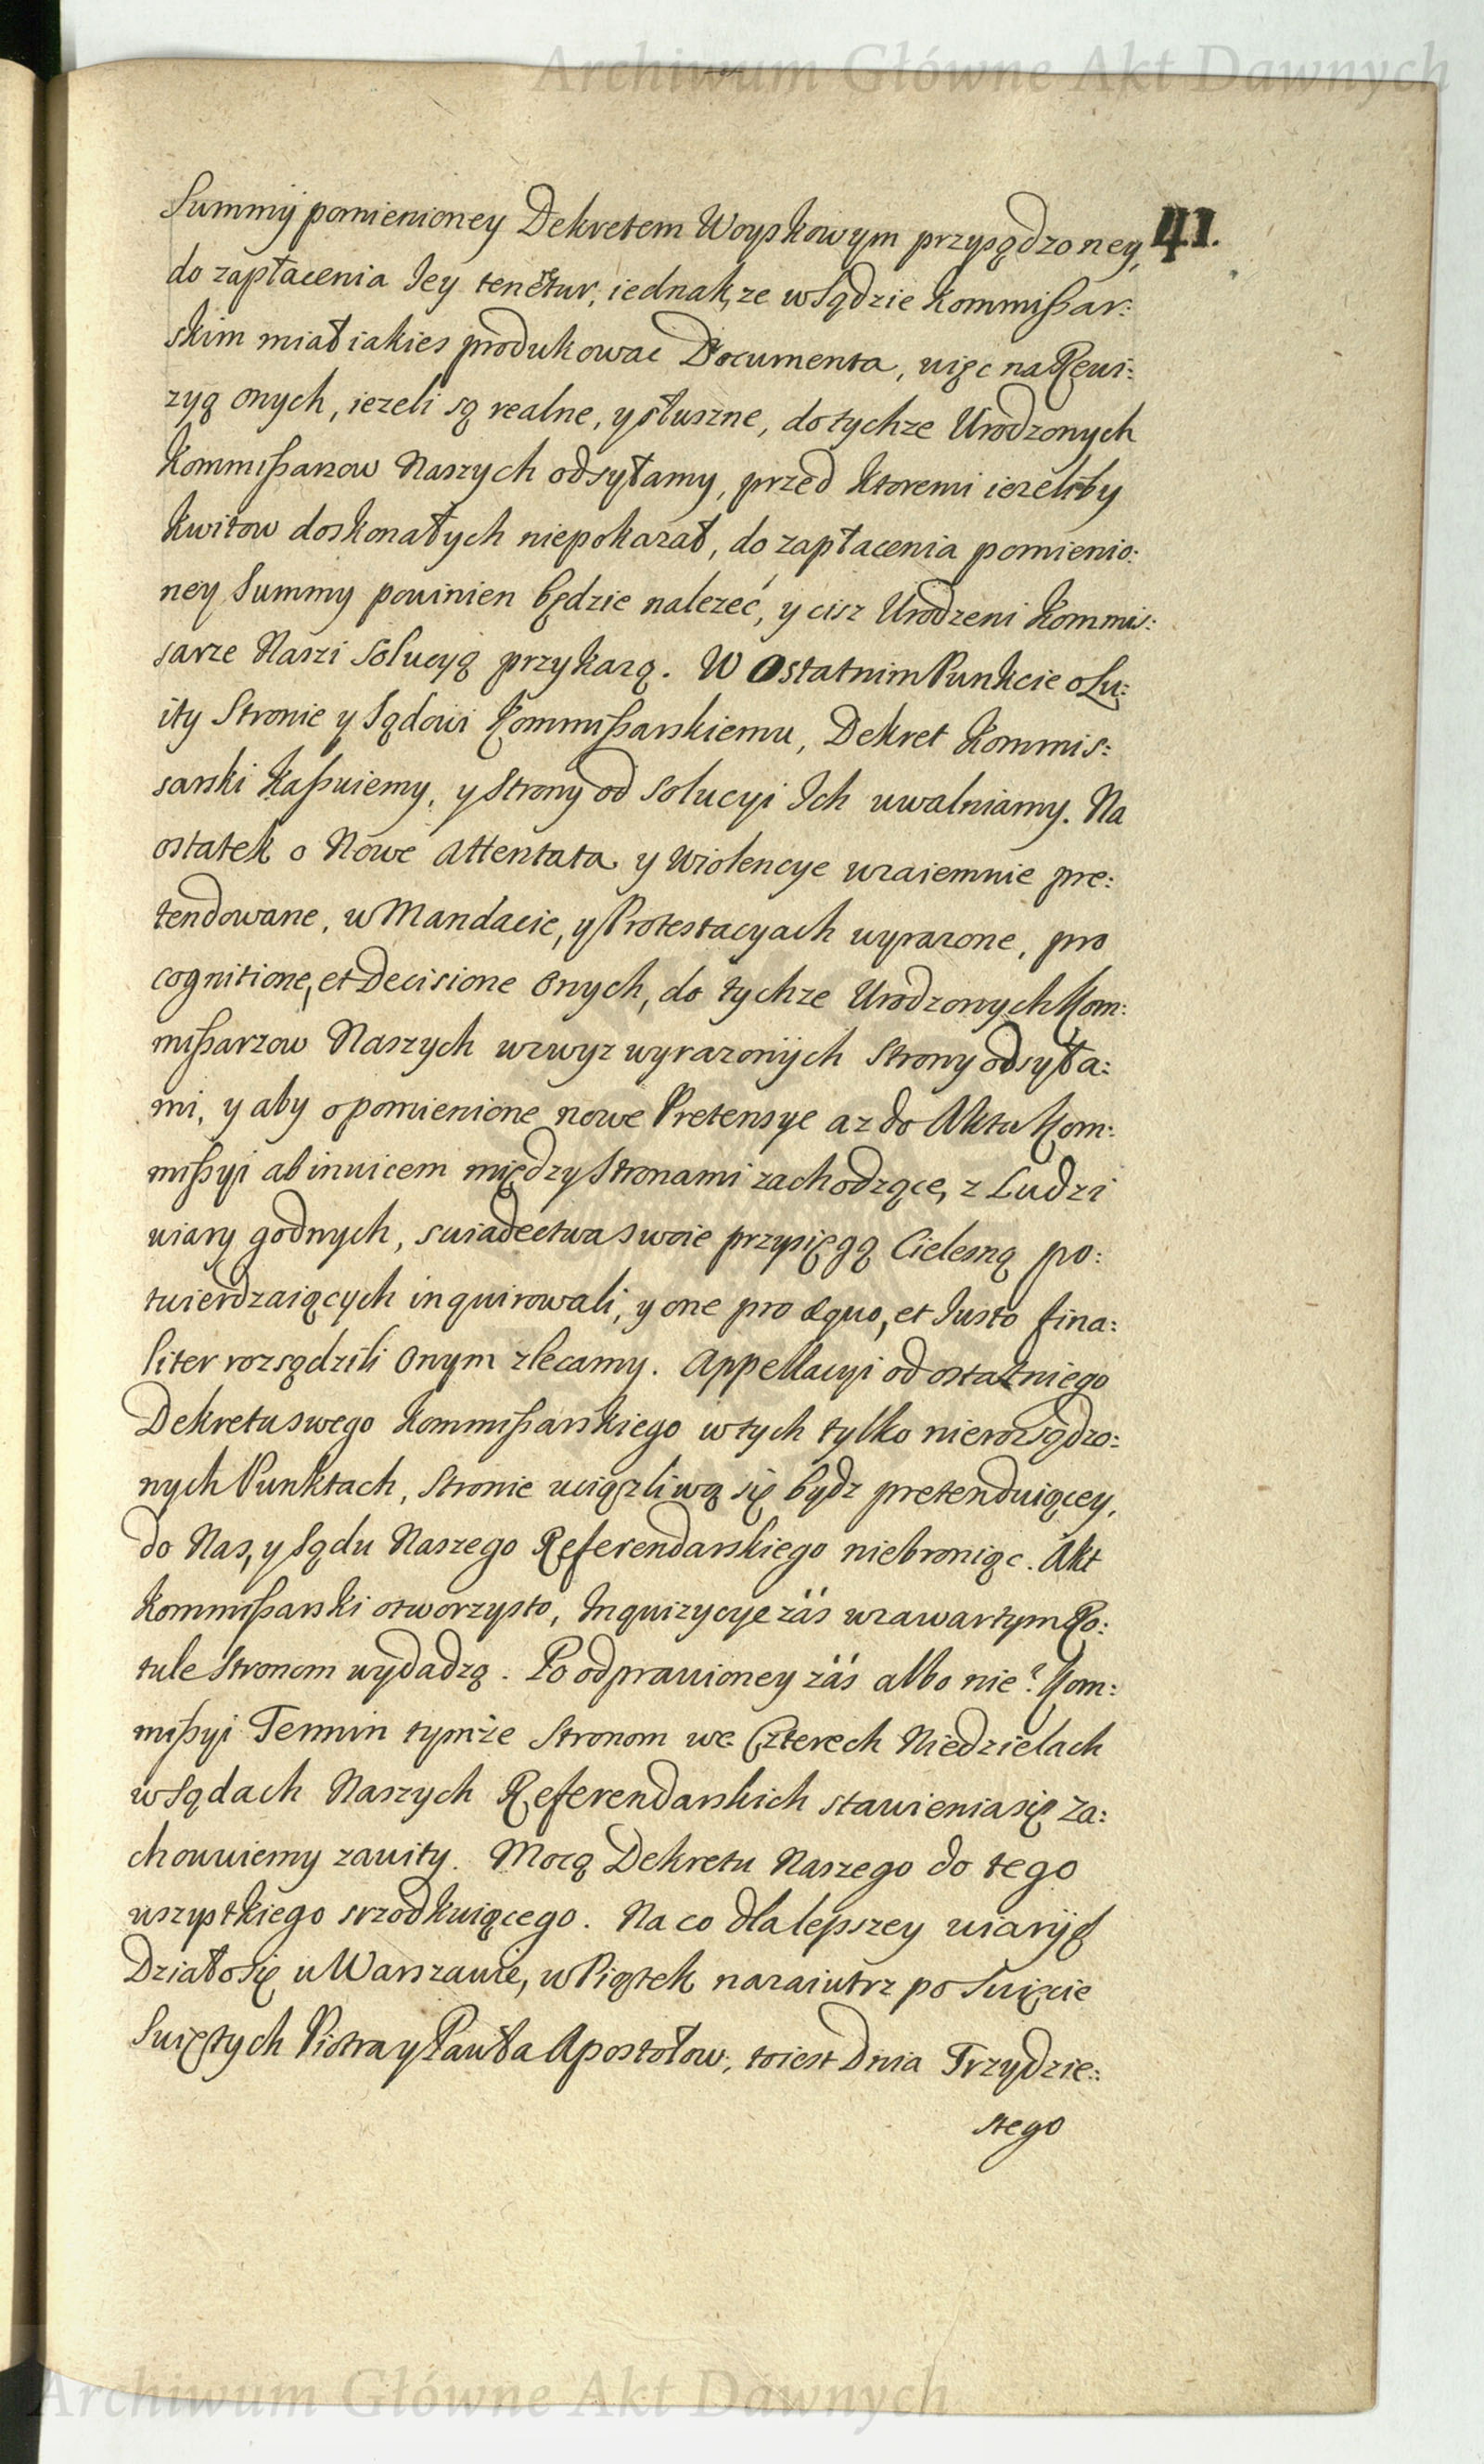 Archiwum Główne Akt Dawnych
41.
Summy pomienioney Dekretem Woyskowym przysądzoney,
do zapłacenia Jey tenetur, iednak, ze w Sądzie Kommißar:
skim miał iakies produkowac Documenta, więc na Rewi:
zyą onych, iezeli są realne, y słuszne, do tychze Urodzonych
Kommißarzow Naszych odsyłamy, przed ktoremi iezeliby
kwitow doskonałych niepokazał, do zapłacenia pomienio:
ney Summy powinien będzie nalezeć, y cisz Urodzeni Kommis:
sarze Naszi Solucyą przykazą. W Ostatnim Punkcie o Lu:
ity Stronie y Sądowi Kommißarskiemu, Dekret Kommis:
sarski kaßuiemy, y Strony od Solucyi Ich uwalniamy. Na
ostatek o Nowe Attentata y Wiolencye wzaiemnie pre:
tendowane, w Mandacie, y Protestacyach wyrazone, pro
cognitione, et Decisione Onych, do tychze Urodzonych Kom:
mißarzow Naszych wzwyz wyrazonych Strony odsyła:
mi, y aby o pomienione nowe Pretensye az do Aktu Kom:
mißyi ab invicem między Stronami zachodzące, z Ludzi
wiary godnych, swiadectwa swoie przysięgą Cielesną po:
twierdzaiących inquirowali, y one pro æquo, et Justo fina:
liter rozsądzili Onym zlecamy. Appellacyi od ostatniego
Dekretu swego Kommißarskiego w tych tylko nierozsądzo:
nych Punktach, Stronie uciązliwą się bydz pretenduiącey,
do Nas, y Sądu Naszego Referendarskiego niebroniąc. Akt
Kommißarski otworzysto, Inquizycye zäs w zawartym Ro:
tule Stronom wydadzą. Po odprawioney zäs albo nie? Kom:
mißyi Termin tymże Stronom we Czterech Niedzielach
w Sądach Naszych Referendarskich stawienia się za:
chowuiemy zawity. Mocą Dekretu Naszego do tego
wszystkiego srzodkuiącego. Na co dla lepszey wiary &
Działo się w Warszawie, w Piątek nazaiutrz po Swięcie
Swiętych Piotra y Pawła Apostołow, to iest Dnia Trzydzie:
stego
Archiwum Główne Akt Dawnych